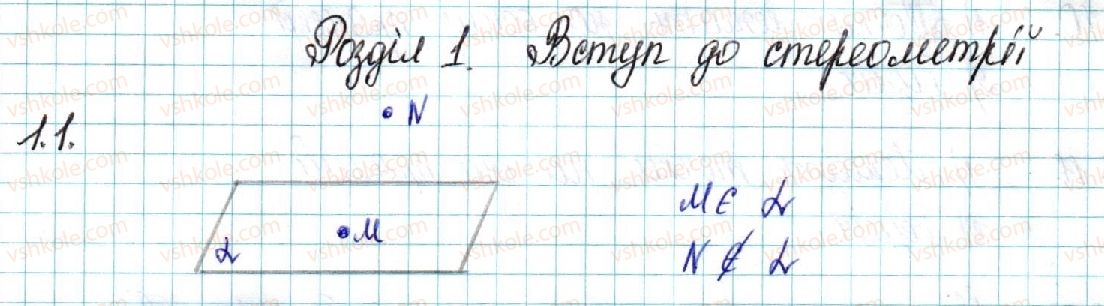 Розділ 1. Вступ до стереометрії
• N
1.1.
M ∈ α
•M
α
N ∉ α
vshkole.com